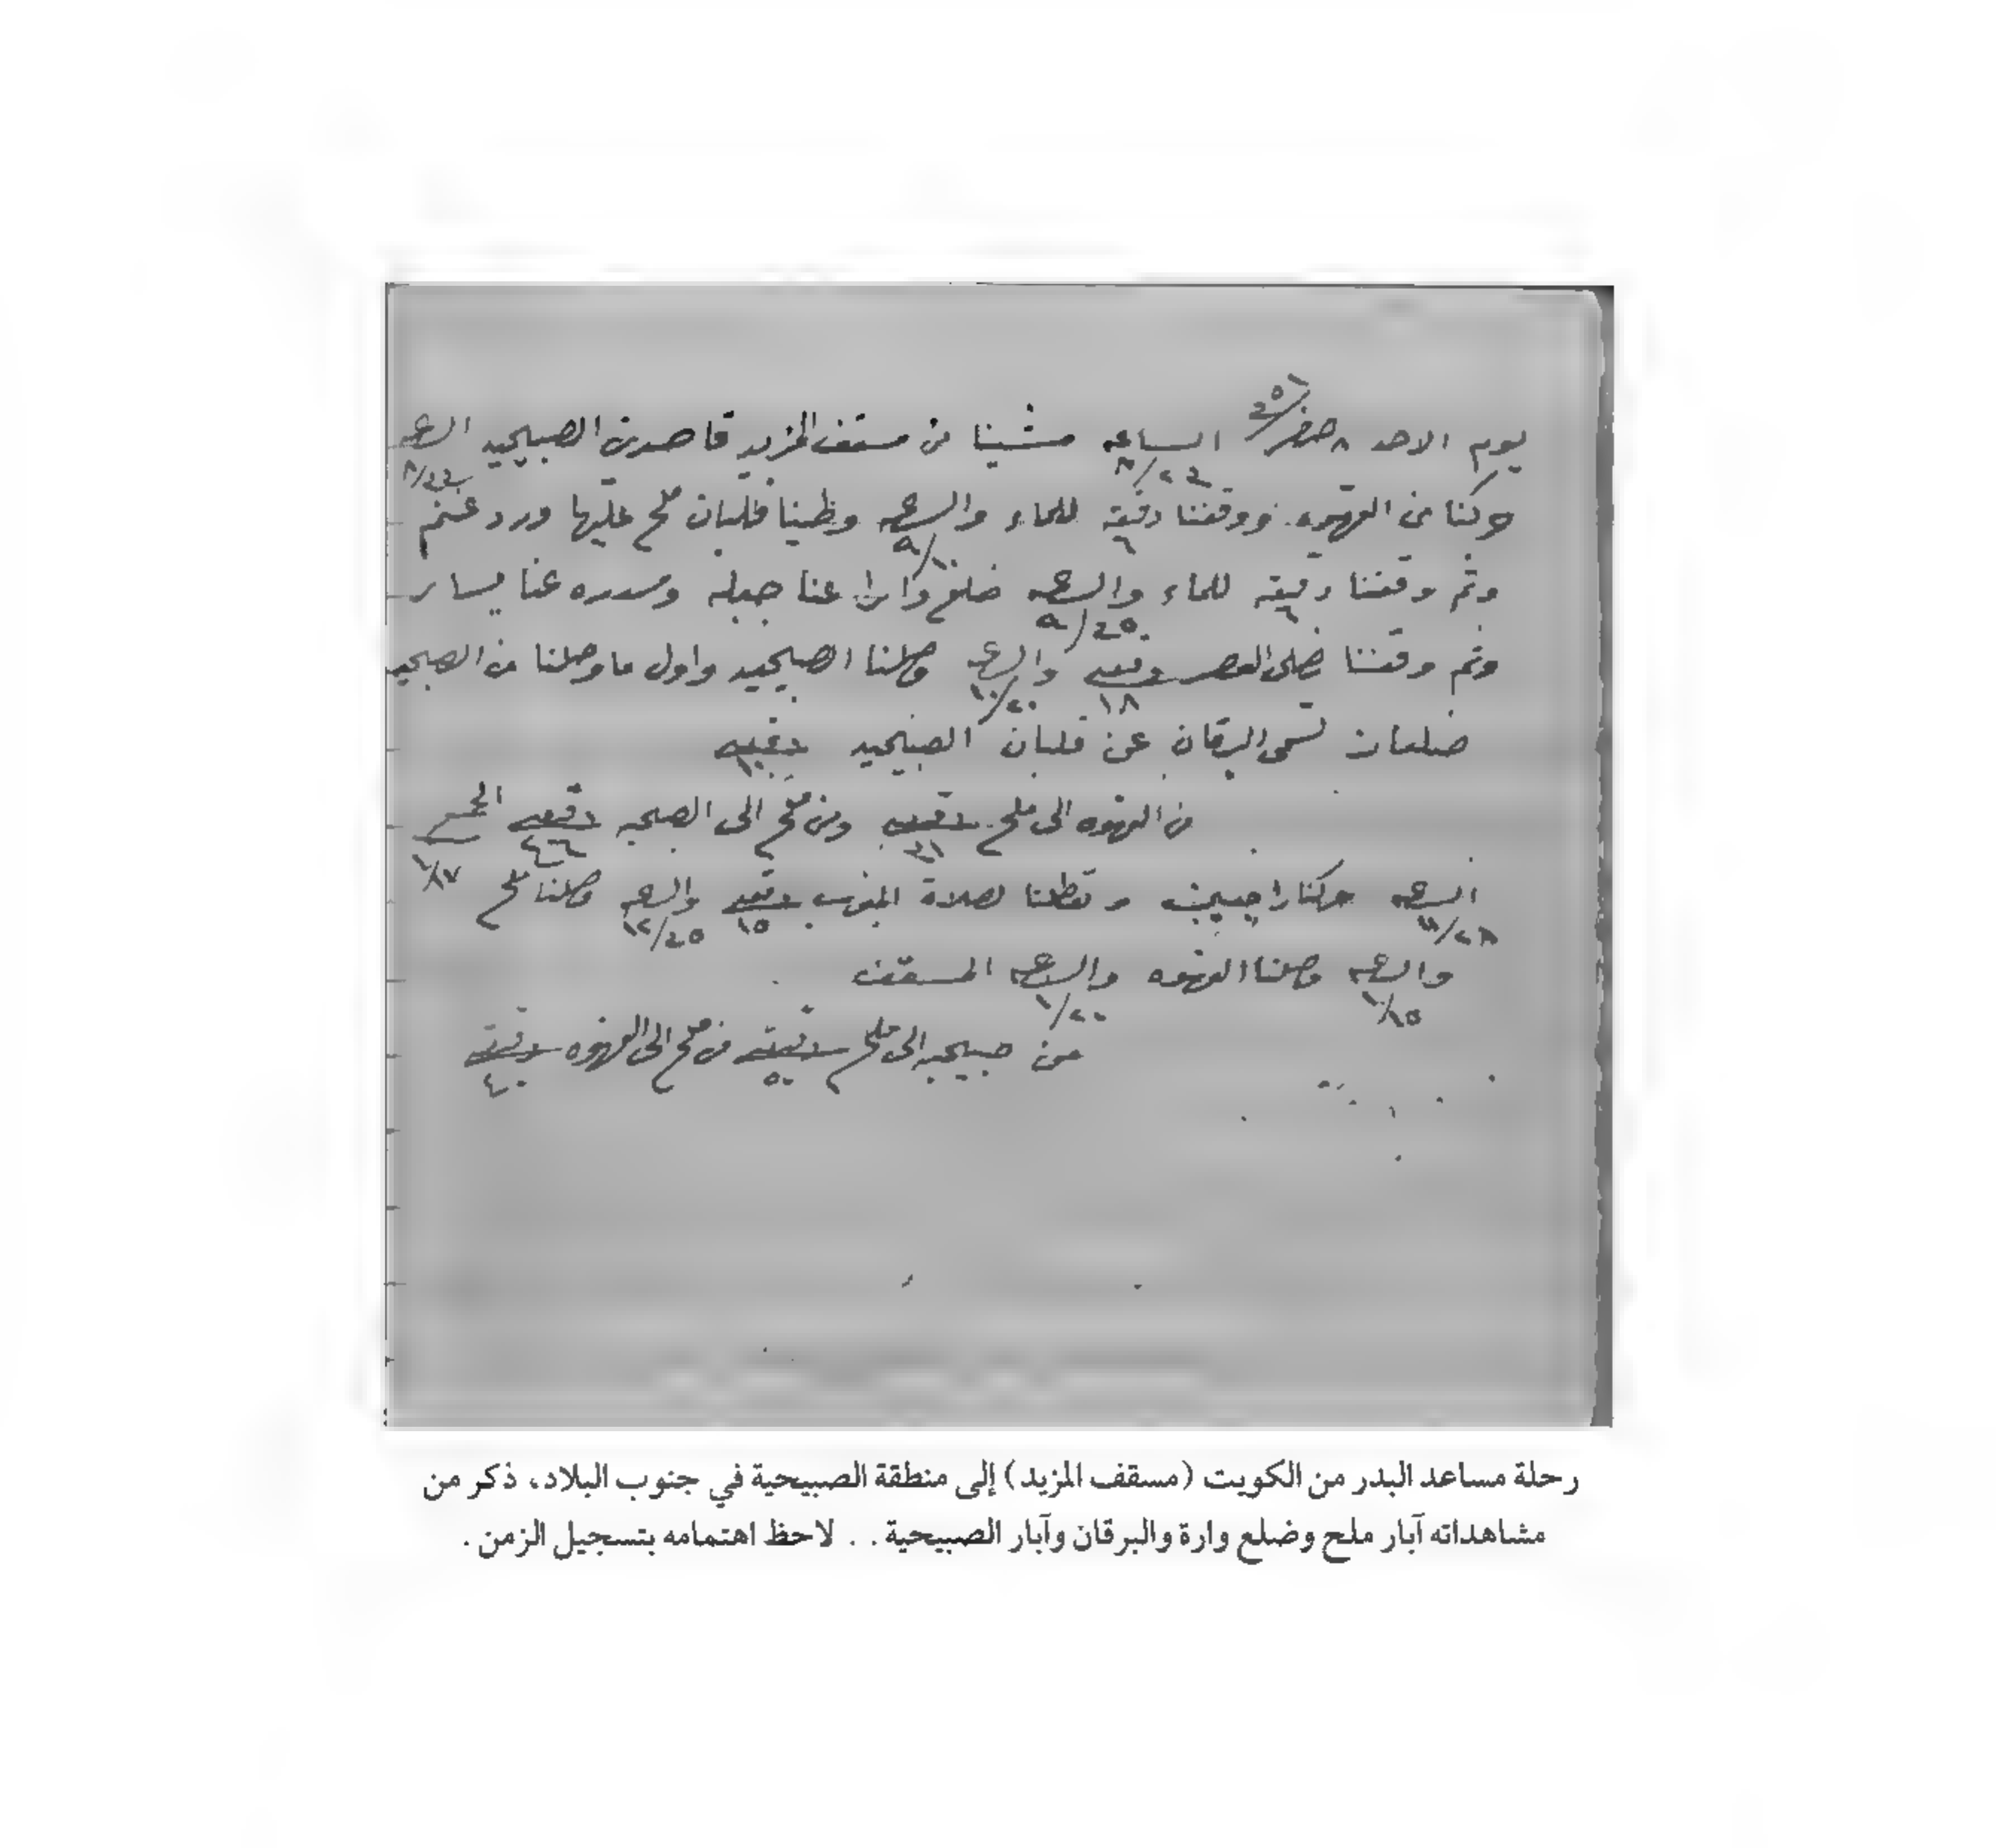 يوم الاحد ٨ صفر الساعه ٨/٢٣ مشينا من مسقف المزيد قاصدين الصبيحيه السعه ٨/٤٣
حركنا من القهوه ووقفنا دقيقه ٦ للماء والسعه ٩/١٠ وطينا قلبان ملح عليها ورد غنم
وثم وقفنا دقيقه ٦ للماء والسعه ٩/٤٥ ضلع وارا عنا جبله عنا يسار
وثم وقفنا نصلي العصر دقيقه ١٨ والسعه ١٠/٢٠ وصلنا الصبيحيه واول ما وصلنا من الصبحيه
ضلعان تسمى البرقان عن قلبان الصبيحيه دقيقه ١٠
من القهوه الى ملح دقيقه ومن ملح الى الصبحيه دقيقه ٤٦ الجميع ١/٨٧
السعه ١١/٢٨ حركنا راجعين لصلاة المغرب دقيقه ١٥ والسعه ١٢/٤٥ وصلنا ملح
والسعه وصلنا القهوه والسعه ١/٤٠ المسقف
من صبيحيه الى ملح دقيقه ٥٠ من ملح الى القهوه دقيقه ٤٠
رحلة مساعد البدر من الكويت (مسقف المزيد) إلى منطقة الصبيحية في جنوب البلاد، ذكر من
مشاهداته آبار ملح وضلع وارة والبرقان وآبار الصبيحية . . لاحظ اهتمامه بتسجيل الزمن .